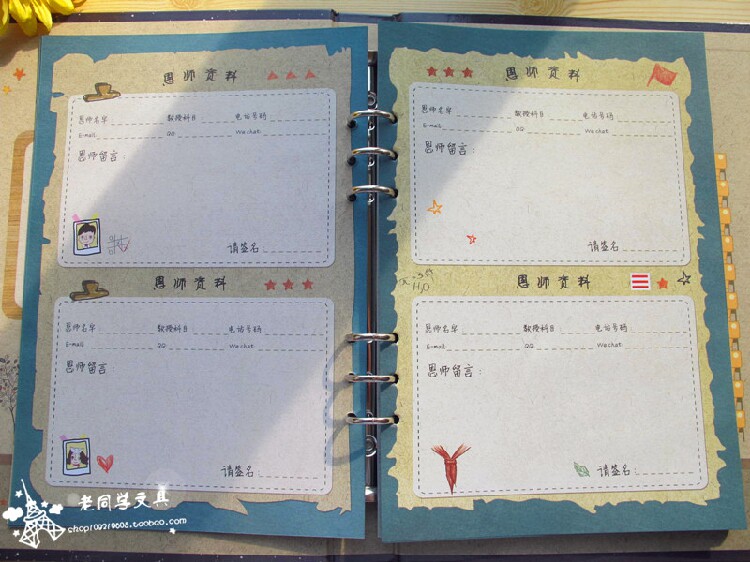 恩师资料
恩师名字 教授科目 电话号码
E-mail QQ Wechat
恩师留言
请签名
恩师资料
恩师名字 教授科目 电话号码
E-mail QQ Wechat
恩师留言
请签名:
恩师资料
恩师名字 教授科目 电话号码
E-mail QQ Wechat
恩师留言:
请签名:
恩师资料
H₂O
恩师名字 教授科目 电话号码
E-mail QQ Wechat
恩师留言:
请签名:
老同学文具